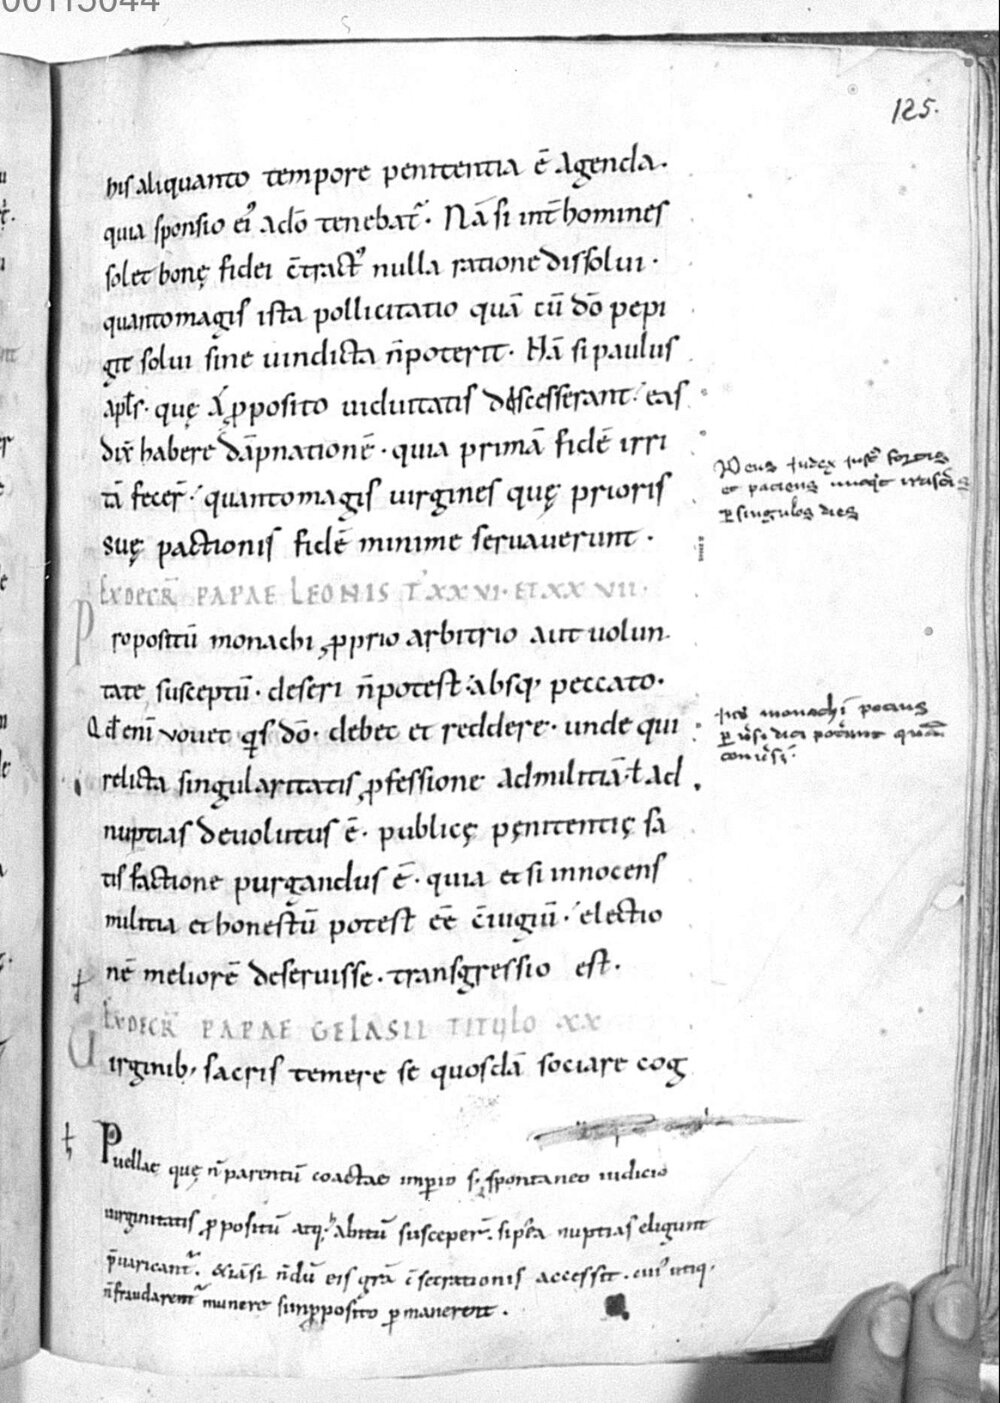 00113044
125.
his aliquanto tempore penitentia ē agenda.
quia sponsio eiꝰ a dō tenebat᷑. Nā si int̄ homines
solet bonę fidei c̄tractꝰ nulla ratione dissolui.
quantomagis ista pollicitatio quā cū dō pepi
git solui sine uindicta n̄ poterit. Nā si paulus
apl̄s. quę a ꝓposito uiduitatis discesserant eas
dix̄ habere dāpnationē. quia primā fidē irri
tā fecer̄. quantomagis uirgines quę prioris
suę pactionis fidē minime seruauerunt.
EX DECR̄ PAPAE LEONIS T XXVI. ET XXVII.
Propositū monachi ꝓprio arbitrio aut uolun
tate susceptū. deseri n̄ potest absq; peccato.
Qd̄ enī vouet q̄s dō. debet et reddere. unde qui
relicta singularitatis ꝓfessione ad militiā ł ad
nuptias deuolutus ē. publicę pęnitentię sa
tisfactione purgandus ē. quia et si innocens
militia et honestū potest eē c̄iugiū. electio
nē meliorē deseruisse. transgressio est.
EX DECR̄ PAPAE GELASII TITULO XX
Uirginib; sacris temere se quosdā sociare cog
Puellae quę n̄ parentū coactae imꝑio s; spontaneo iudicio
uirginitatis ꝓpositū atq; habitū susceper̄. si p̄ea nuptias eligunt
p̄uaricant᷑. & iā si n̄dū eis gr̄a c̄secrationis accessit. cuiꝰ utiq;
n̄ fraudarent᷑ munere si in ꝓposito ꝑmanerent.
Deus iudex iustꝰ fortis
et paciens
ꝑ singulos dies
monachi pocius